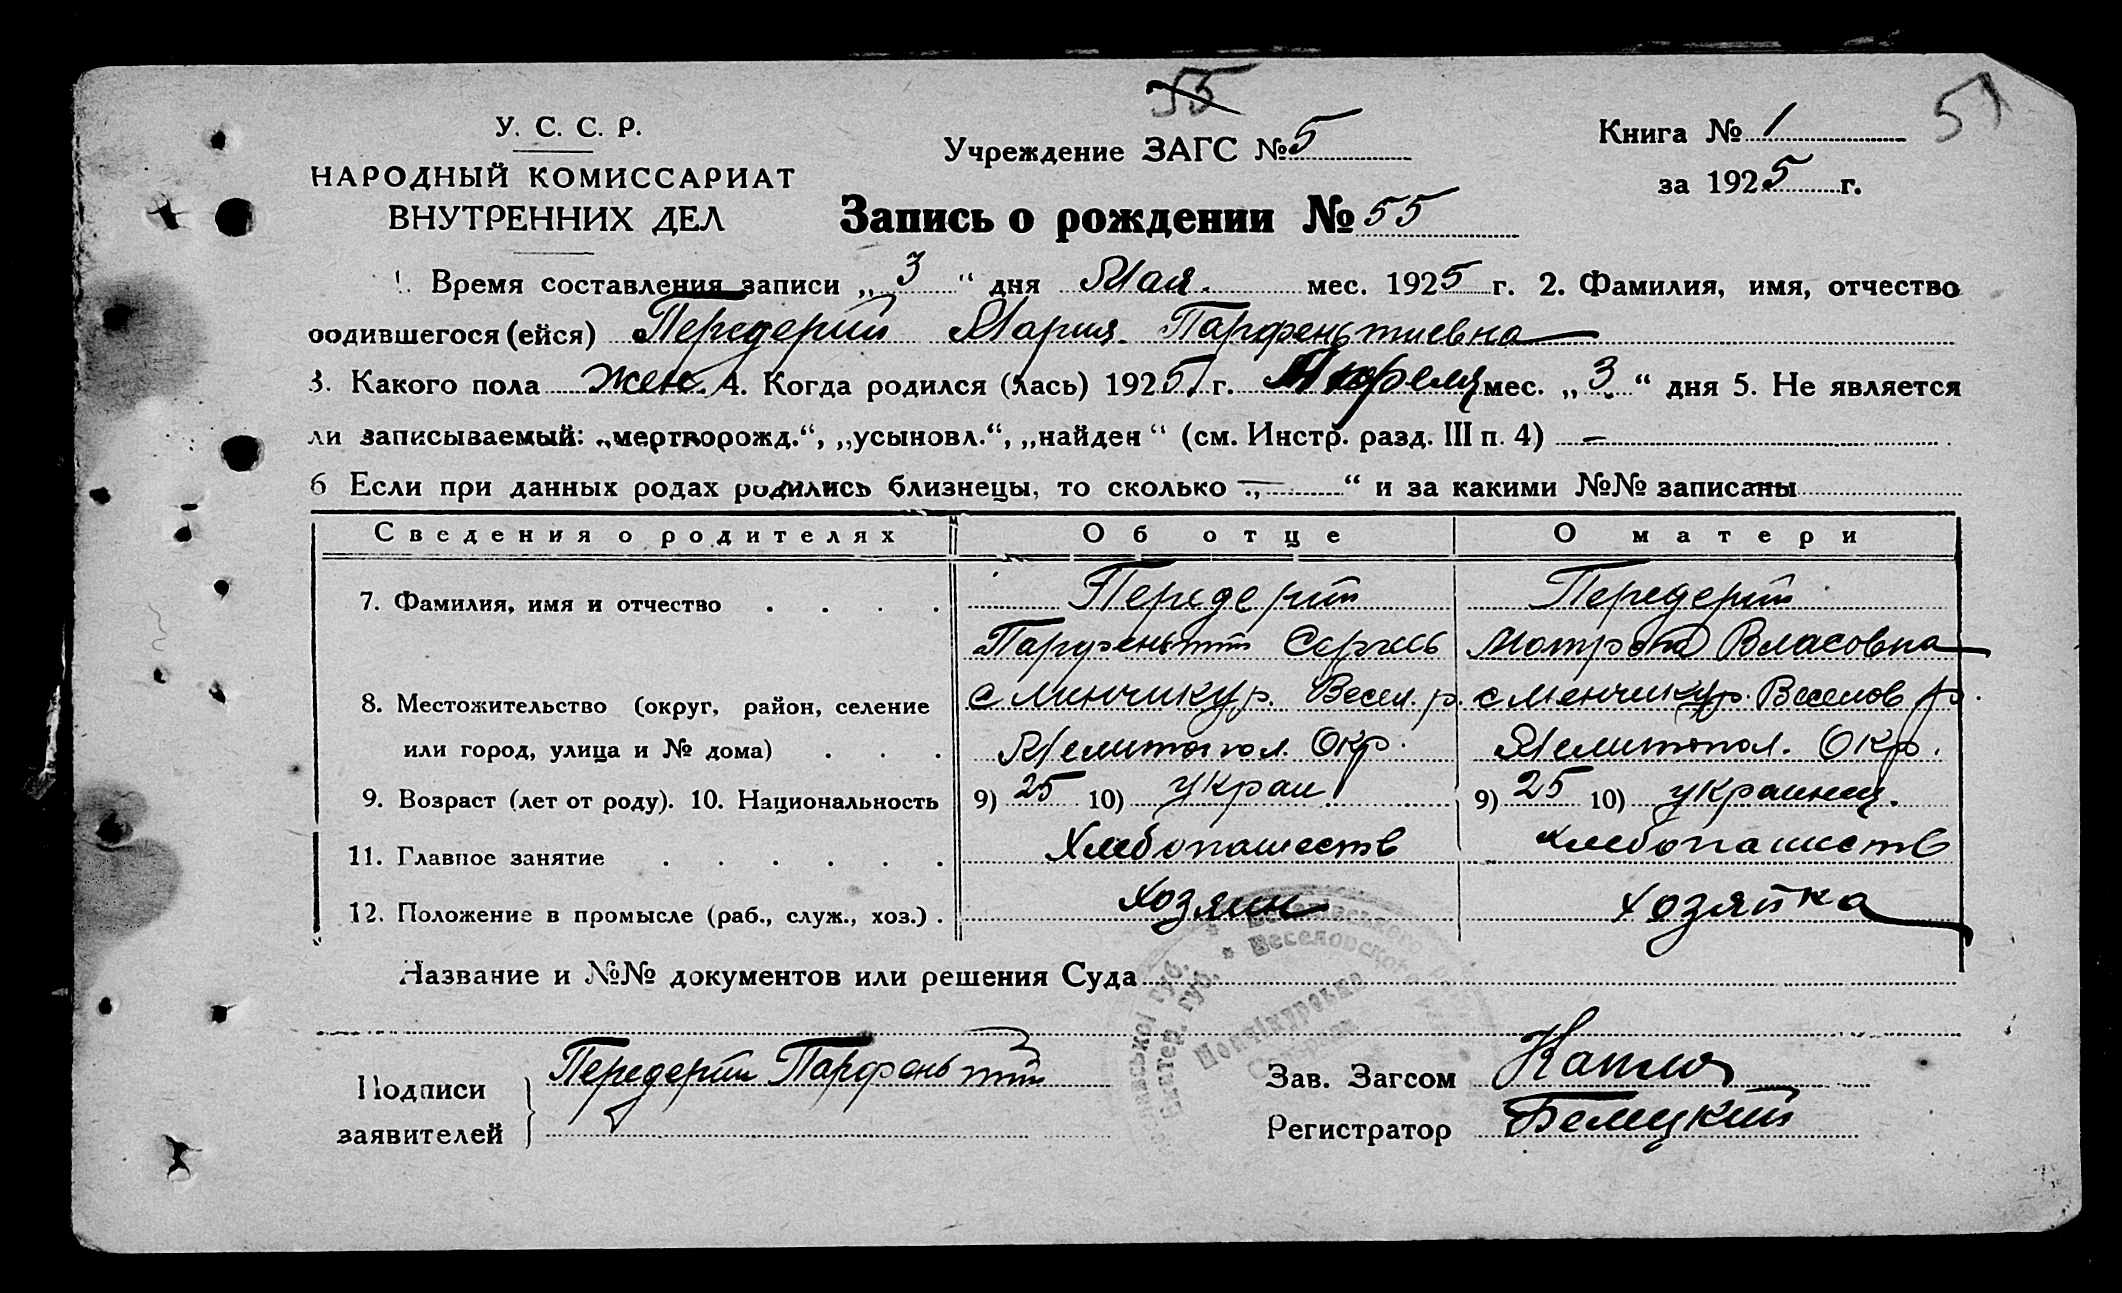 55
51
У. С. С. Р.
НАРОДНЫЙ КОМИССАРИАТ
ВНУТРЕННИХ ДЕЛ
Учреждение ЗАГС № 5
Книга № 1
за 1925 г.
Запись о рождении № 55
1. Время составления записи „ 3 “ дня Мая. мес. 1925 г. 2. Фамилия, имя, отчество
родившегося (ейся) Передерий Мария Парфеньтиевна
3. Какого пола жен. 4. Когда родился (лась) 1925 г. Апреля мес. „ 3 “ дня 5. Не является
ли записываемый: „мертворожд.“, „усыновл.“, „найден“ (см. Инстр. разд. III п. 4) –
6 Если при данных родах родились близнецы, то сколько „ — “ и за какими №№ записаны
Сведения о родителях Об отце О матери
7. Фамилия, имя и отчество . . . . Передерий Передерий
Парфеньтий Сергеев Мотрона Власовна
8. Местожительство (округ, район, селение с Минчикур. Весел. р. с Менчикур. Веселов р.
или город, улица и № дома) . . . Мелитопол. Окр. Мелитопол. Окр.
9. Возраст (лет от роду). 10. Национальность 9) 25 10) украи 9) 25 10) украинец.
11. Главное занятие . . . . . . Хлебопашеств хлебопашеств
12. Положение в промысле (раб., служ., хоз.) . хозяин хозяйка
Название и №№ документов или решения Суда
Екатер. губ. * Веселовского
Подписи
заявителей
Передерий Парфеньтий
Зав. Загсом
Регистратор Белецкий